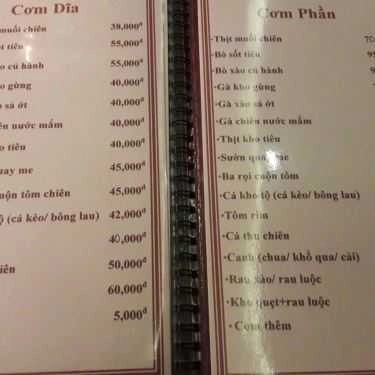 Cơm Dĩa
muối chiên 38,000đ
tiêu 55,000đ
củ hành 55,000đ
gừng 40,000đ
sả ớt 40,000đ
nước mắm 40,000đ
tiêu 40,000đ
me 45,000đ
cuộn tôm chiên 45,000đ
tộ (cá kèo/ bông lau) 42,000đ
40,000đ
50,000đ
60,000đ
5,000đ
Cơm Phần
•Thịt muối chiên 70
•Bò sốt tiêu
•Bò xào củ hành
•Gà kho gừng
•Gà xào sả ớt
•Gà chiên nước mắm
•Thịt kho tiêu
•Sườn quay me
•Ba rọi cuộn tôm
•Cá kho tộ (cá kèo/ bông lau)
•Tôm rim
•Cá thu chiên
•Canh (chua/ khổ qua/ cải)
•Rau xào/ rau luộc
•Kho quẹt+rau luộc
•Cơm thêm